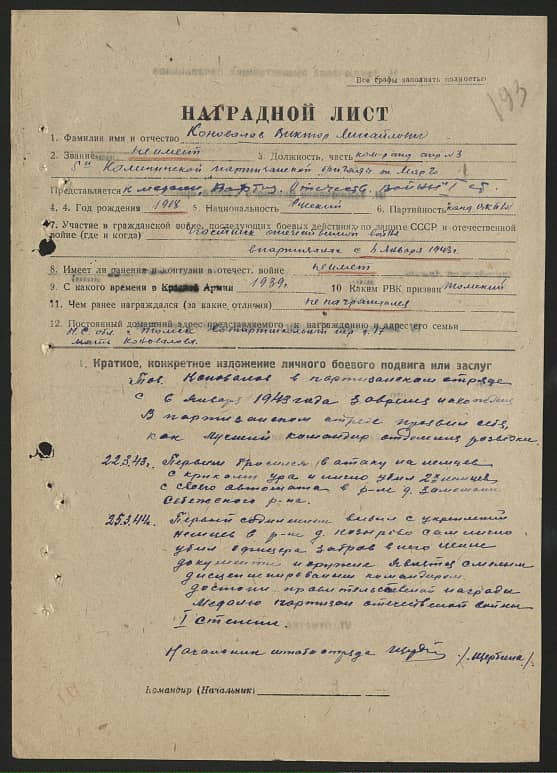 Все графы заполнять полностью
193
НАГРАДНОЙ ЛИСТ
1. Фамилия имя и отчество Коновалов Виктор Михайлович
2. Звание не имеет 3. Должность, часть
5ой Калининской партизанской бригады
Представляется к медали Партиз. Отечеств. войны I ст.
4. 4. Год рождения 1918 5. Национальность Русский 6. Партийность канд. ВКП(б)
7. Участие в гражданской войне, последующих боевых действиях по защите СССР и отечественной
войне (где и когда) участник отечественной войны
в партизанах с 6 января 1943 г.
8. Имеет ли ранения и контузии в отечест. войне не имеет
9. С какого времени в Красной Армии 1939 г. 10 Каким РВК призван Томский
11. Чем ранее награждался (за какие, отличия) не награждался
12. Постоянный домашний адрес представляемого к награждению и адрес его семьи
Н.С. обл. г. Томск
мать Коновалова
1. Краткое, конкретное изложение личного боевого подвига или заслуг
Тов. Коновалов в партизанском отряде
с 6 января 1943 года
В партизанском отряде проявил себя,
как лучший командир отделения разведки.
22.3.43г. Первым бросился в атаку на немцев
с криком ура и лично убил 22 немцев
с своего автомата в р-не д.
Себежского р-на.
25.3.44г. Первый с отделением выбил с укреплений
немцев в р-не д. лично
убил офицера забрав у него ценные
документы и оружие. Является смелым
дисциплинированным командиром.
Достоин правительственной награды
Медалью партизан отечественной войны
I степени.
Начальник штаба отряда /Щербина/.
Командир (Начальник)